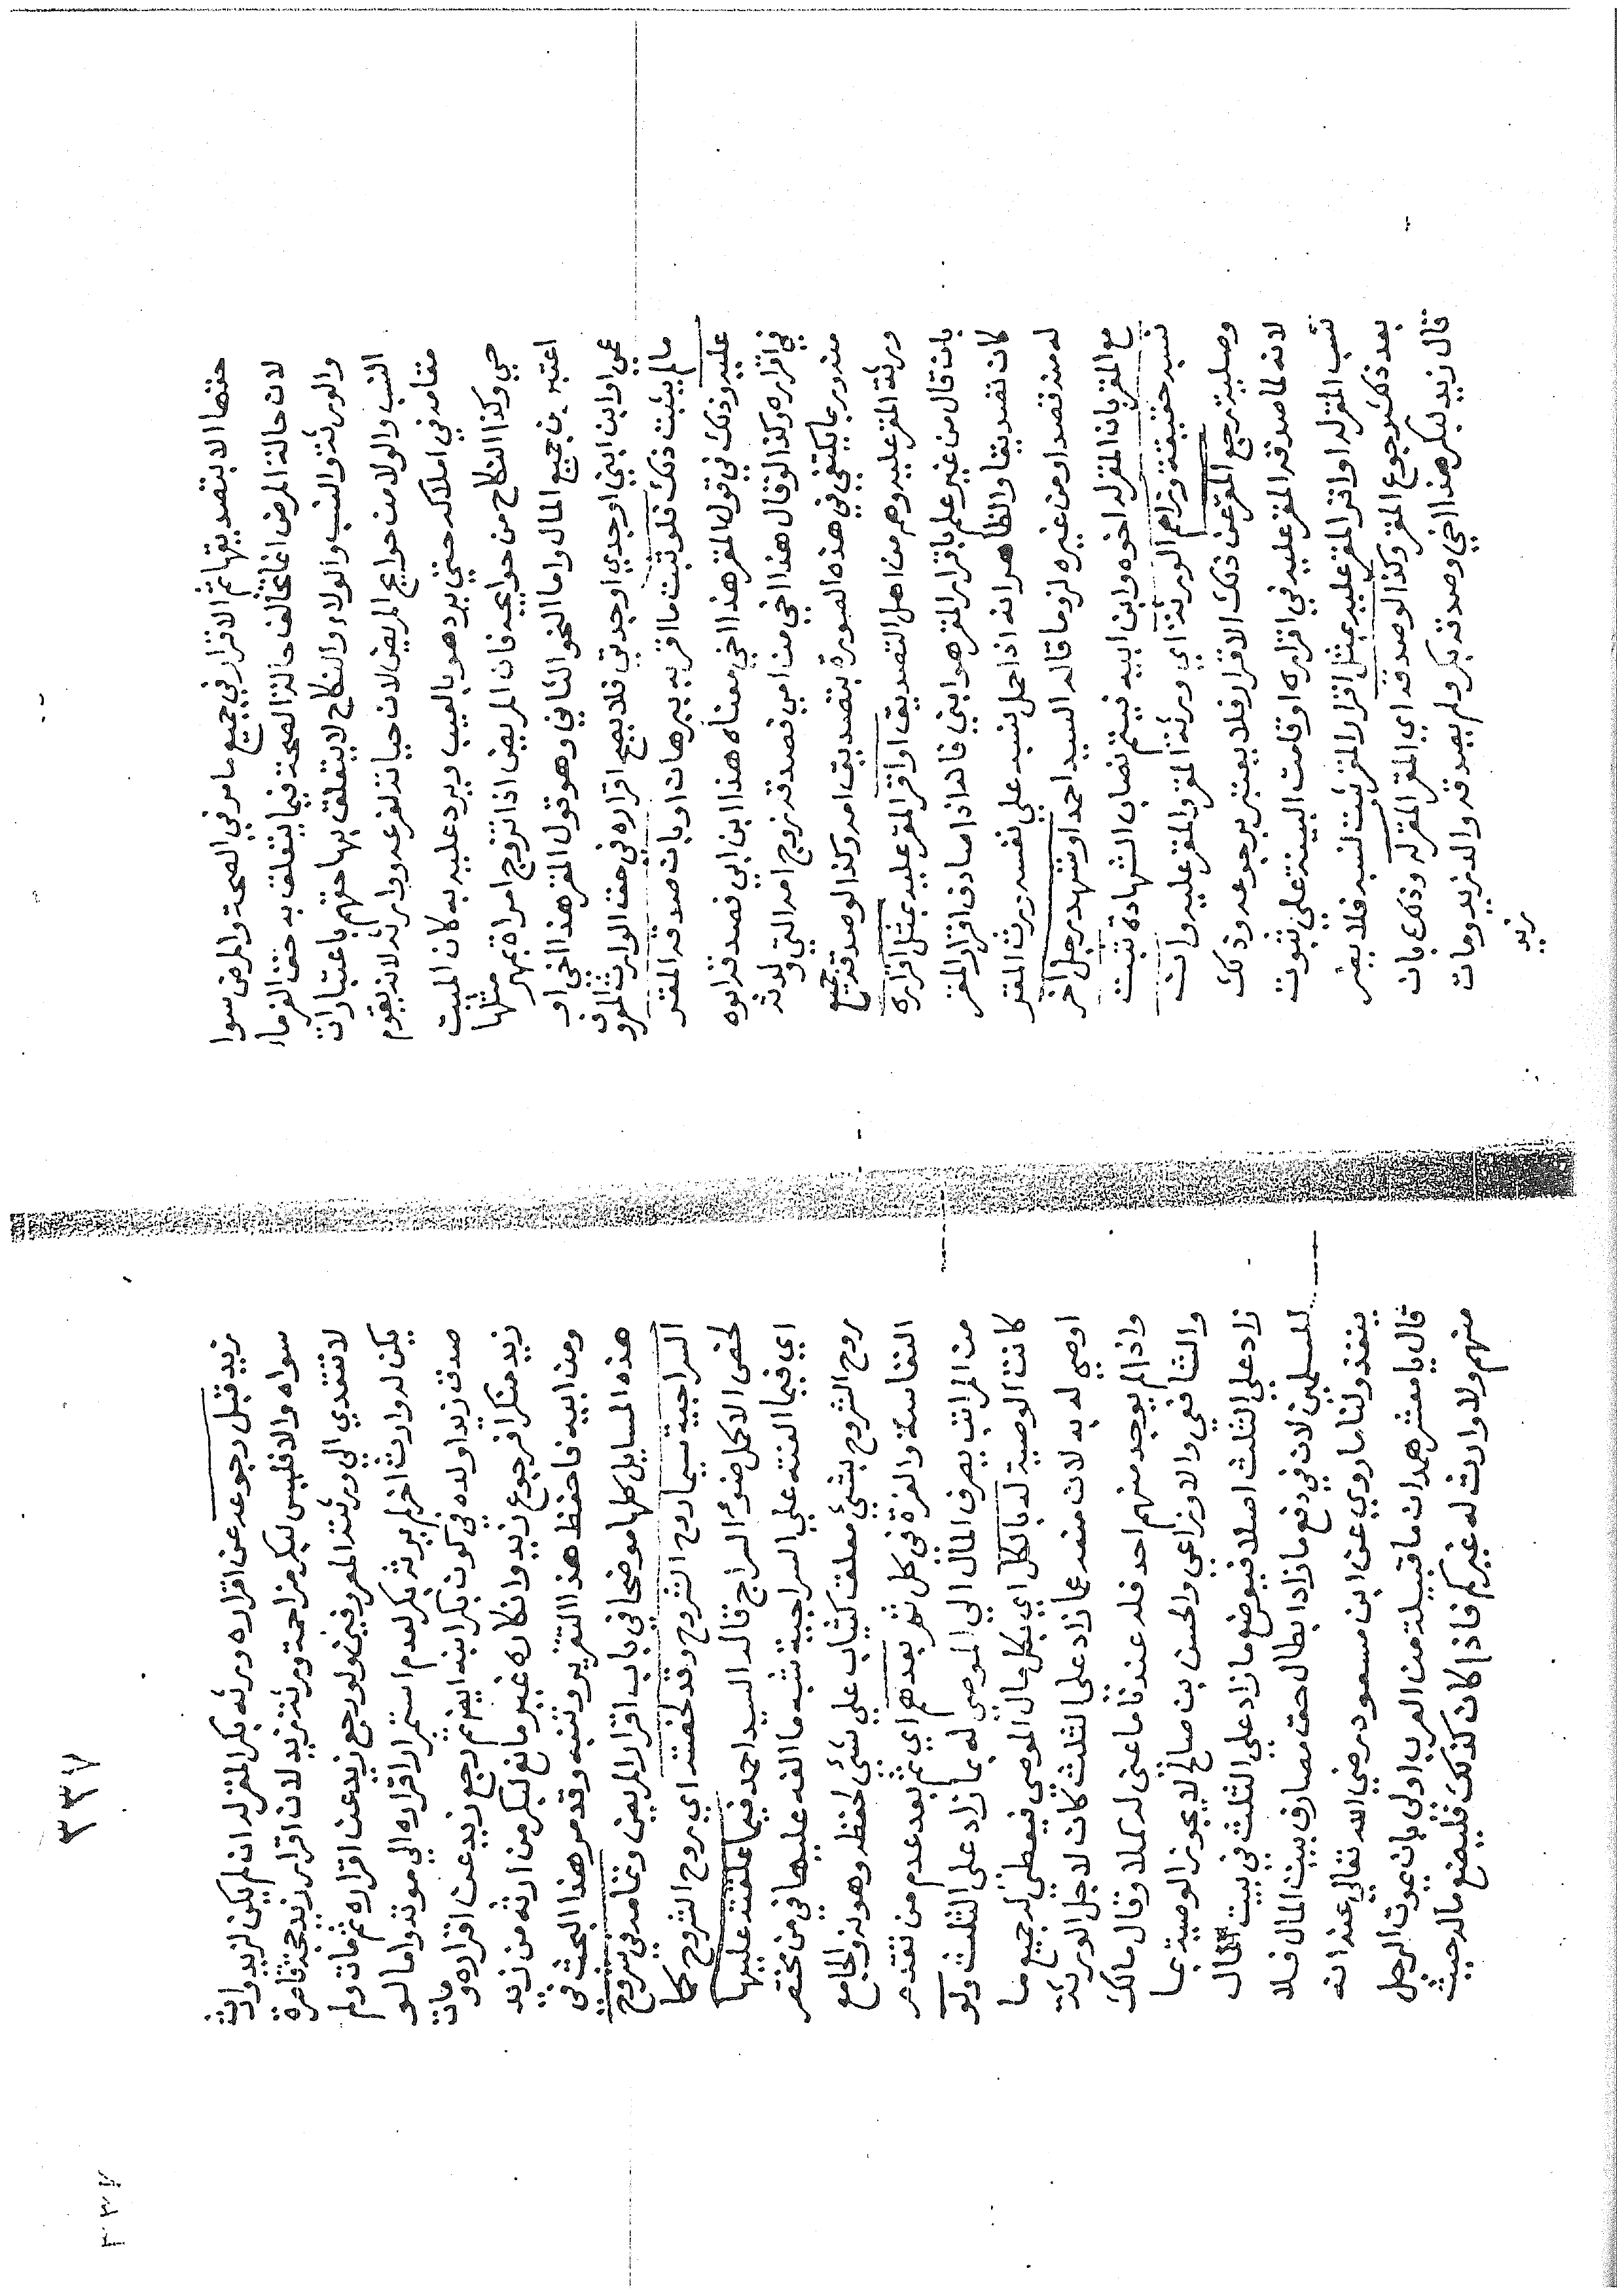 حقها الا بتصديقها ثم الاقرار في جميع ما مر في الصحة والمرض سوا
لان حالة المرض انما تخالف حالة الصحة فيما يتعلق به حق الغرماء
والورثة والنسب والولاء والنكاح لا يتعلق بها حقهم باعتبار ان
النسب والولا من حوايج المريض لان حياته لفرعه و لانه يقوم
مقامه في املاكه حتي يرد هو بالعيب ويرد عليه به كان الميت
حي وكذا النكاح من حوايجه فان المريض اذا تزوج امراة بمهر مثلها
اعتبر من جميع المال واما النحو الثاني وهو قول المقر هذا اخي او
عمي او ابن ابني او جدي او جدتي فلا يصح اقراره في حق الوارث المعروف
مالم يثبت ذلك فلو ثبت ما اقر به ببرهان او بان صدقه المقر
عليه وذلك في قول المقر هذا اخي معناه هذا ابن ابي فصدقه ابوه
في اقراره وكذا لو قال هذا اخي من امي فصدقه زوج امه التي ولدته
منه وربما يكتفي في هذه الصورة بتصديق امه وكذا لو صدقه جميع
ورثة المقر عليه وهم من اهل التصديق او اقر المقر عليه بمثل اقراره
بان قال من غير علم باقرار المقر هو ابني فانه اذا صادف اقرار المقر
كان تصديقا والظاهر انه اذا حمل نسبه علي نفسه ورث المقر
له منه قصدا ومن غيره لزوما قاله السيد احمد او شهد رجل اخر
مع المقر بان المقر له اخوه وابن ابيه فيتم نصاب الشهادة ثبت
نسبه حقيقة وزاحم الورثة اي ورثة المقر والمقر عليه وان
وصلية رجع المقر عن ذلك الاقرار فلا يعتبر برجوعه وذلك
لانه لما صدقه المقر عليه في اقراره او قامت البينة علي ثبوت
نسب المقر له او اقر المقر عليه بمثل اقرار المقر ثبت النسب فلا يضر
بعد ذلك رجوع المقر وكذا لو صدقه اي المقر المقر له وذلك بان
قال زيد لبكر هذا اخي وصدقه بكر ولم يصدقه والد زيد ومات
زيد
٣٣٧
زيد قبل رجوعه عن اقراره ورثه بكر المقر له ان لم يكن لزيد وارث
سواه والا فليس لبكر مزاحمة ورثة زيد لان اقرار زيد حجة قاصرة
لا تتعدي الي ورثته المعروفين ولو رجع زيد عن اقراره ثم مات ولم
يكن له وارث اخر لم يرثه بكر لعدم استمرار اقراره الي موته واما لو
صدق زيدا ولده في كون بكر ابنه ايضا ثم رجع زيد عن اقراره ومات
زيد منكرا فرجوع زيد وان كان غير مانع لبكر من ارثه من زيد
ومن ابيه فاحفظ هذا التقرير وتنبه وقد مر هذا البحث في
هذه المسايل كلها موضحا في باب اقرار المريض وتمامه في شروح
السراجية سيما روح الشروح وقد لخصته اي روح الشروح كما
لخص الاكمل ضوء السراج قاله السيد احمد فيما علقته عليها
اي فيما الفته علي السراجية شبه ما الفه عليها في من مختصر
روح الشروح بشيء معلق كثياب علي شيء احفظ وهو له والجامع
النفاسة والغرة في كل ثم بعدهم اي ثم بعد عدم من تقدم
من المراتب يصرف المال الي الموصي له بما زاد علي الثلث ولو
كانت الوصية له بالكل اي بكل مال الموصي فيعطي له جميع ما
اوصي له به لان منعه عما زاد علي الثلث كان لاجل الورثة
واذا لم يوجد منهم احد فله عندنا ما عني له كملا وقال مالك
والشافعي والاوزاعي والحسن بن صالح لا يجوز الوصية بما
زاد علي الثلث اصلا فيوضع ما زاد علي الثلث في بيت المال
للمسلمين لان في دفع ما زاد ابطال حق مصارف بيت المال فلا
ينفذ ولنا ما روي عن ابن مسعود رضي الله تعالي عنه انه
قال يا معشر همدان ما قبيلة من العرب اولي بان يموت الرجل
منهم ولا وارث له غيركم فاذا كان كذلك فليضع ماله حيث
٣٣٧